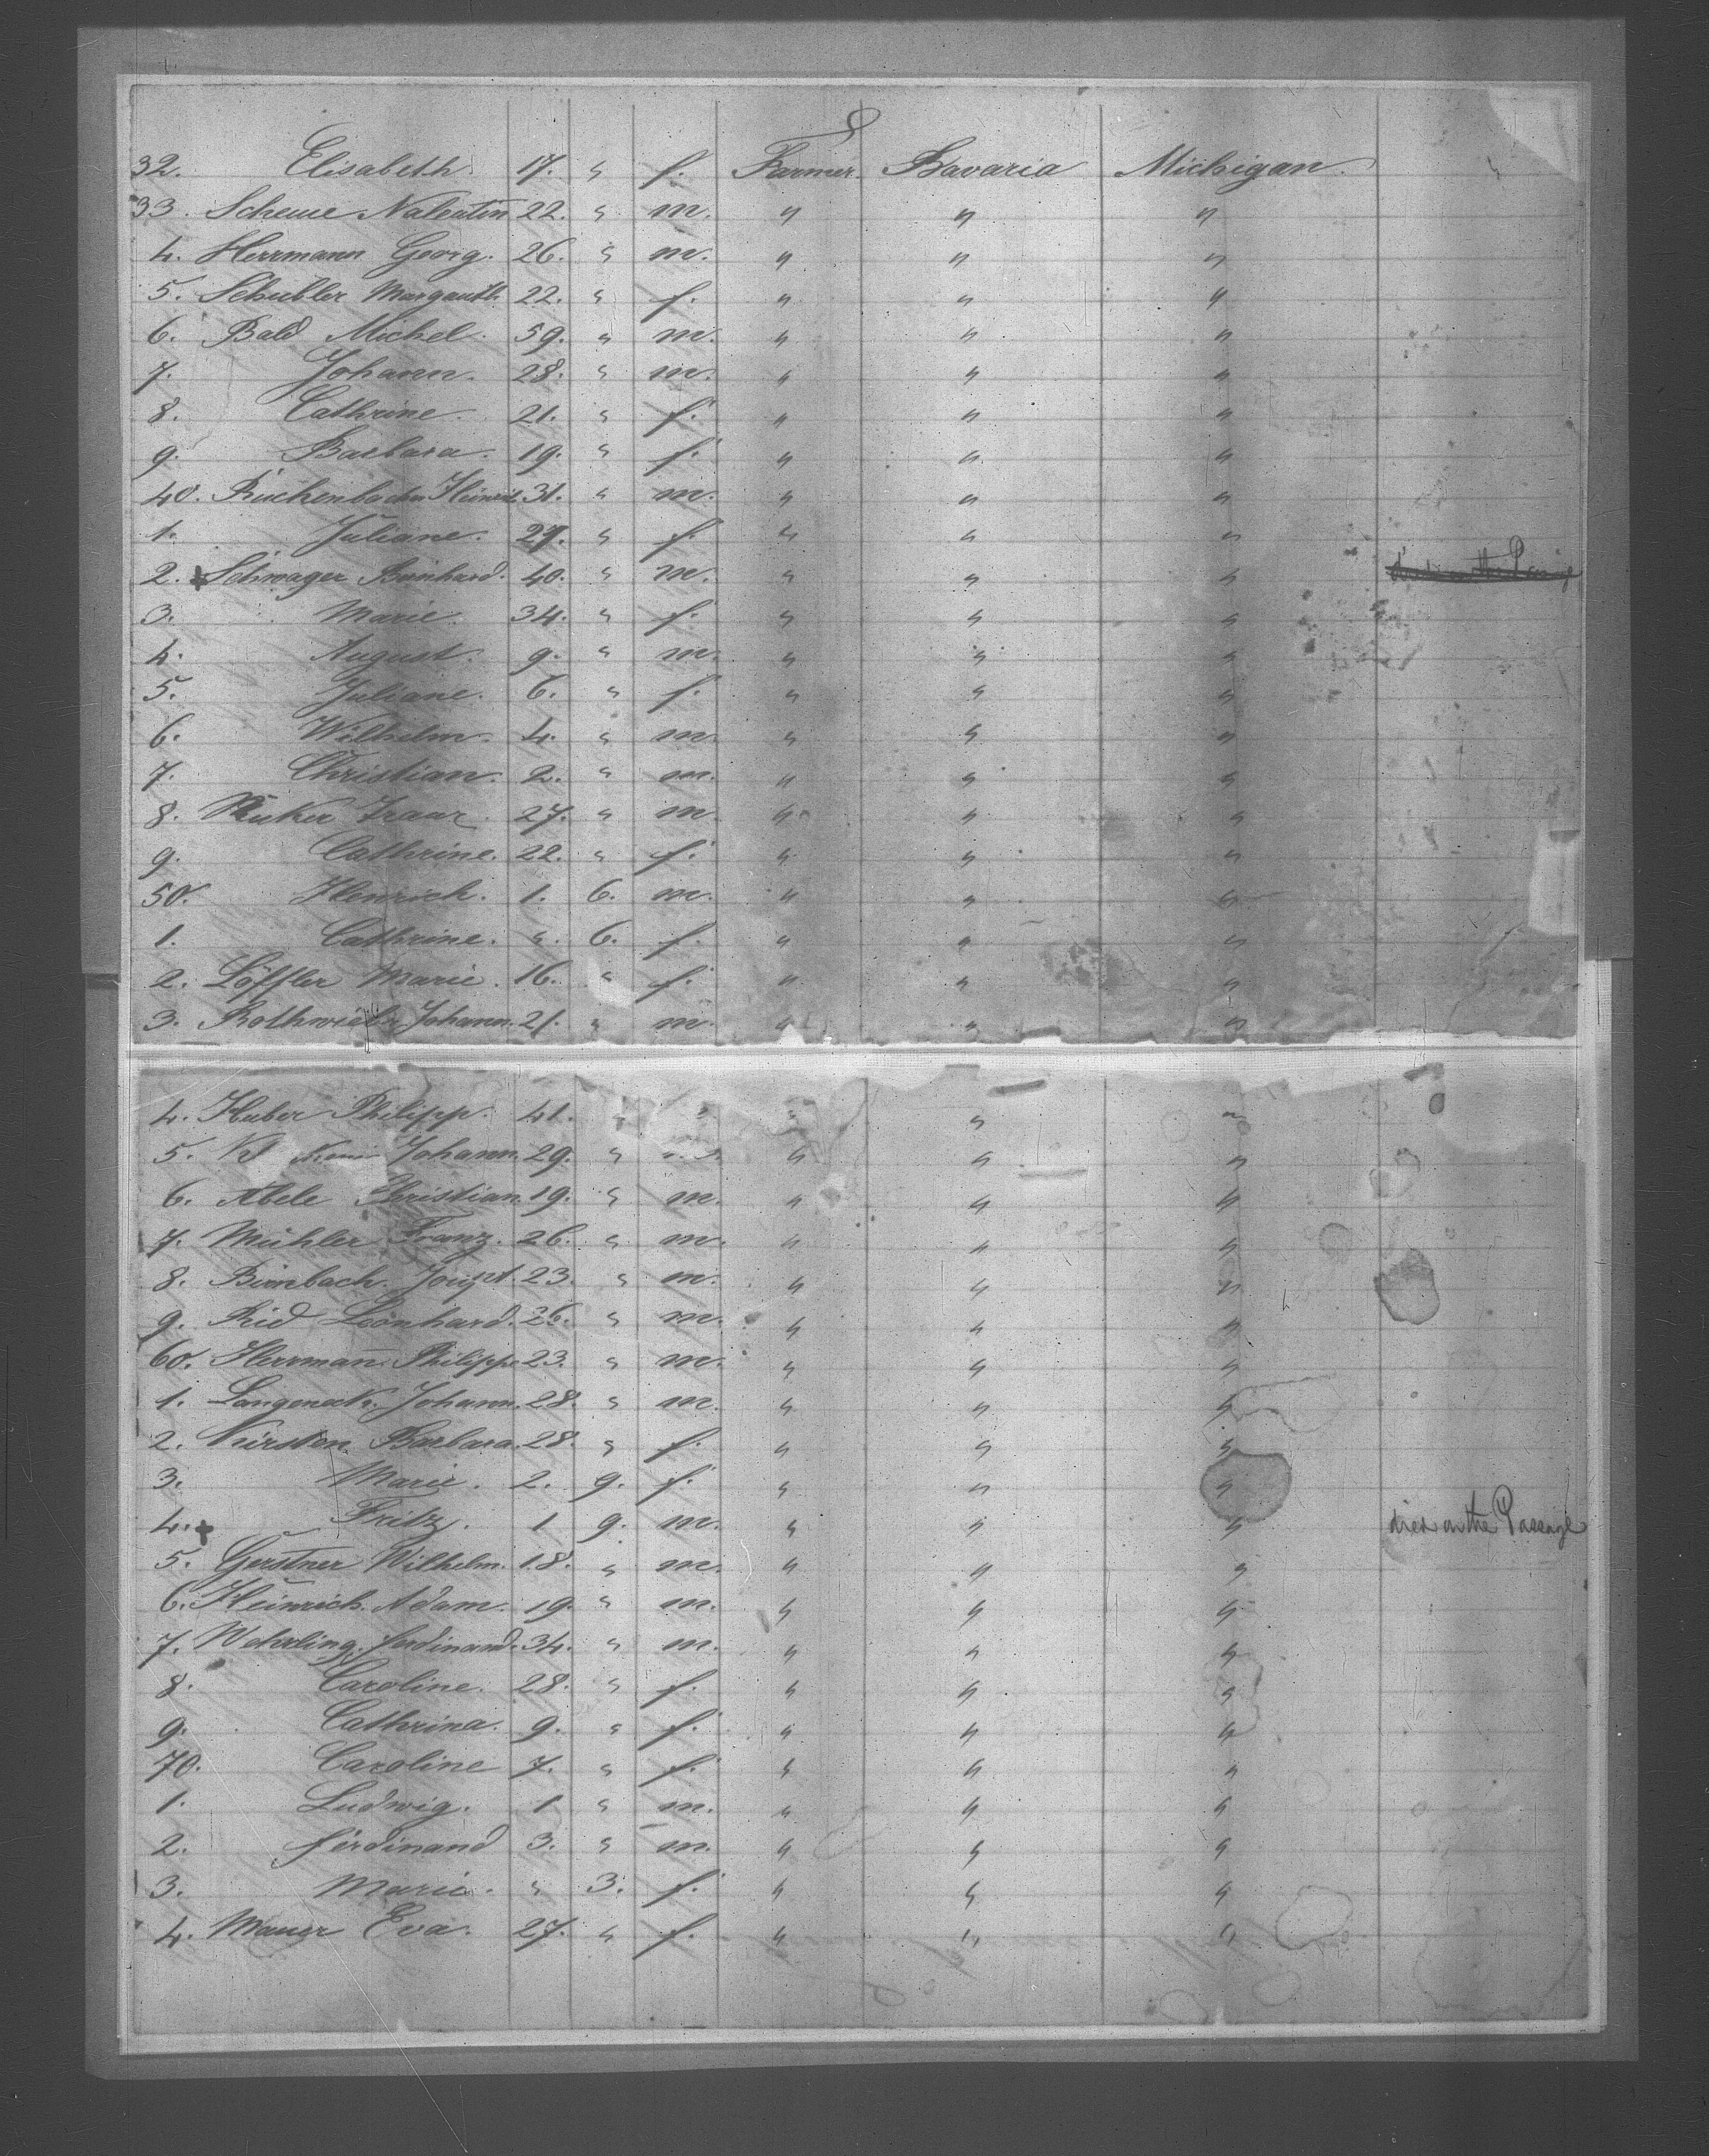 32. Elisabeth. 17. " f. Farmer. Bavaria Michigan.
33. Scheue Valentin 22. " m. " " "
4. Herrmann Georg. 26. " m. " " "
5. Schübler Margareth. 22. " f. " " "
6. Bald Michel. 59. " m. " " "
7. Johann. 28. " m. " " "
8. Cathrine. 21. " f. " " "
9. Barbara. 19. " f. " " "
40. 31. " m. " " "
1. Juliane. 27. " f. " " "
2. + Schwager Bernhard. 40. " m. " " "
3. Marie. 34. " f. " " "
4. August. 9. " m. " " "
5. Juliane. 6. " f. " " "
6. Wilhelm. 4. " m. " " "
7. Christian. 2. " m. " " "
8. 27. " m. " " "
9. Cathrine. 22. " f. " " "
50. Henrich. 1. 6. m. " " "
1. Cathrine. " 6. f. " " "
2. Löffler Marie. 16. " f. " " "
3. Johann. 21. " m. " " "
4. Huber Philipp. 41. " " " "
5. Johann. 29. " " " "
6. Abele Christian. 19. " m. " " "
7. Mühler Franz. 26. " m. " " "
8. Birnbach. 23. " m. " " "
9. Rid Leonhard. 26. " m. " " "
60. Herrmann Philipp. 23. " m. " " "
1. Langeneck. Johann. 28. " m. " " "
2. Kirsten Barbara. 28. " f. " " "
3. Marie. 2. 9. f. " " "
4. + Fritz. 1 9. m. " " " died on the Passage
5. Gerstner Wilhelm. 18. " m. " " "
6. Heinrich. Adam. 19. " m. " " "
7. Wehrling. Ferdinand. 34. " m. " " "
8. Caroline. 28. " f. " " "
9. Cathrina. 9. " f. " " "
70. Caroline 7. " f. " " "
1. Ludwig. 1 " m. " " "
2. Ferdinand 3. " m. " " "
3. Marie. " 3. f. " " "
4. Mauer Eva. 27. " f. " " "